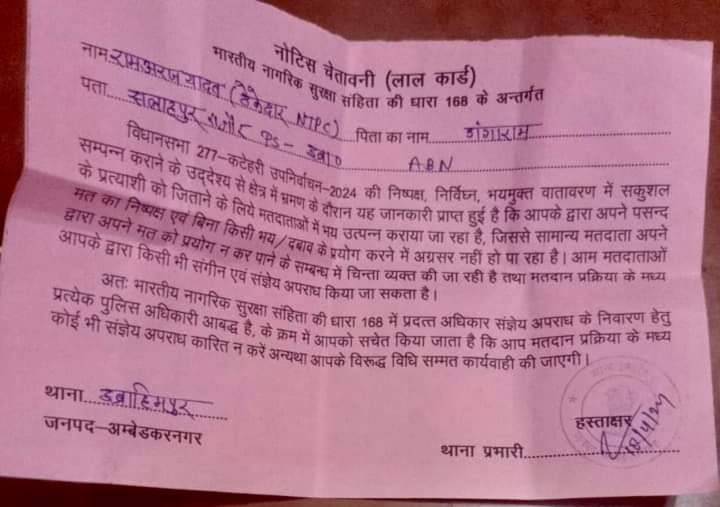 नोटिस चेतावनी (लाल कार्ड)
भारतीय नागरिक सुरक्षा संहिता की धारा 168 के अन्तर्गत
नाम रामअरज यादव (ठेकेदार NTPC) पिता का नाम गंगाराम
पता सलाहपुर PS- इब्रा0 ABN
विधानसभा 277–कटेहरी उपनिर्वाचन–2024 की निष्पक्ष, निर्विघ्न, भयमुक्त वातावरण में सकुशल
सम्पन्न कराने के उद्देश्य से क्षेत्र में भ्रमण के दौरान यह जानकारी प्राप्त हुई है कि आपके द्वारा अपने पसन्द
के प्रत्याशी को जिताने के लिये मतदाताओं में भय उत्पन्न कराया जा रहा है, जिससे सामान्य मतदाता अपने
मत का निष्पक्ष एवं बिना किसी भय/दबाव के प्रयोग करने में अग्रसर नहीं हो पा रहा है। आम मतदाताओं
द्वारा अपने मत को प्रयोग न कर पाने के सम्बन्ध में चिन्ता व्यक्त की जा रही है तथा मतदान प्रक्रिया के मध्य
आपके द्वारा किसी भी संगीन एवं संज्ञेय अपराध किया जा सकता है।
अतः भारतीय नागरिक सुरक्षा संहिता की धारा 168 में प्रदत्त अधिकार संज्ञेय अपराध के निवारण हेतु
प्रत्येक पुलिस अधिकारी आबद्ध है, के क्रम में आपको सचेत किया जाता है कि आप मतदान प्रक्रिया के मध्य
कोई भी संज्ञेय अपराध कारित न करें अन्यथा आपके विरूद्ध विधि सम्मत कार्यवाही की जाएगी।
थाना इब्राहिमपुर
जनपद–अम्बेडकरनगर
हस्ताक्षर
थाना प्रभारी